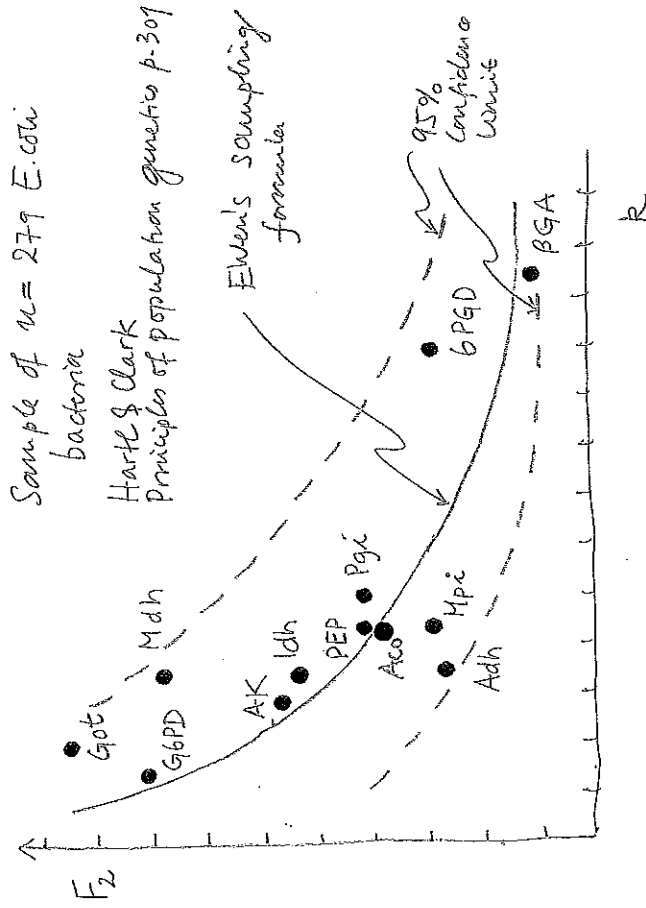 Sample of n = 279 E. coli
bacteria
Hartl & Clark
Principles of population genetics p. 307
Ewen's sampling
formula
95%
Confidence
limit
F₂
Got
Mdh
G6PD
AK
Idh
PEP
Pgi
Aco
Mpi
Adh
6PGD
βGA
k